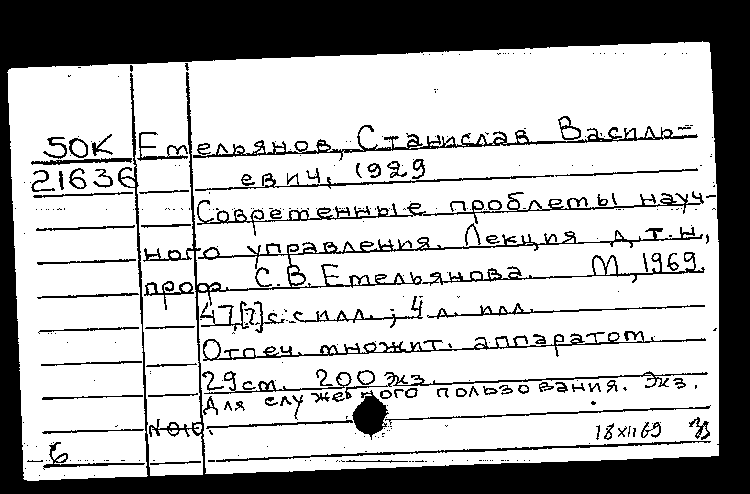 50К Емельянов, Станислав Василь-
21636 евич, 1929
Современные проблемы науч-
ного управления. Лекция д.т.н.,
проф. С.В. Емельянова. М, 1969.
47,[7]с.: с илл.; 4 л. илл.
Отпеч. множит. аппаратом.
29см. 200 экз.
Для служебного пользования. Экз.
№010.
18XII69
б